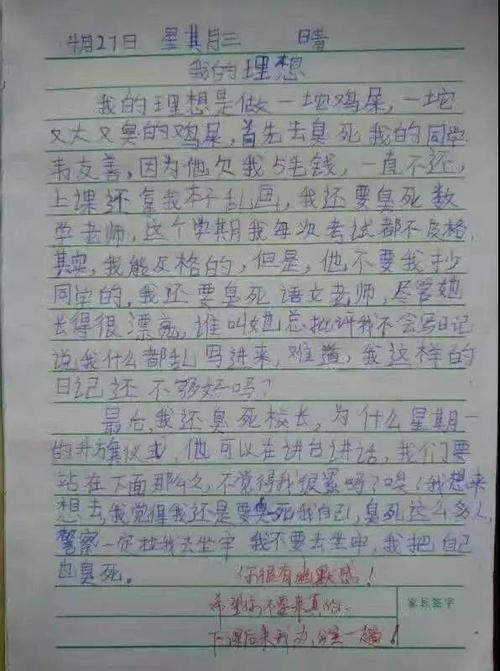 4月27日 星其月三 日晴
我的理想
我的理想是做一坨鸡屎,一坨
又大又臭的鸡屎,首先去臭死我的同学
韦友善,因为他欠我5毛钱,一直不还,
上课还拿我本子乱画,我还要臭死数
学老师,这个学期我每次考试都不及格,
其实,我能及格的,但是,他不要我抄
同学的,我还要臭死语文老师,尽管她
长得很漂亮,谁叫她总批评我不会写日记
说我什么都乱写进来,难道,我这样的
日记还不够好吗?
最后,我还臭死校长,为什么星期一
的升旗仪式,他可以在讲台讲话,我们要
站在下面那么久,不觉得我很累吗?唉!我想来
想去,我觉得我还是要臭死我自己,臭死这么多人,
警察一定拉我去坐牢 我不要去坐牢,我把自己
也臭死。
你很有幽默感!
希望你不要来真的。
下课后来我办公室一趟!
家长签字